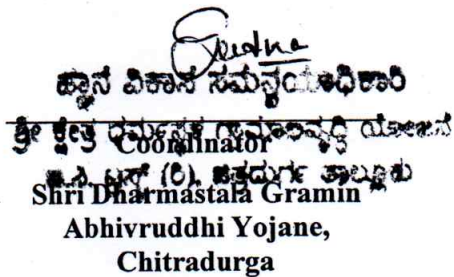 ಜ್ಞಾನ ವಿಕಾಸ ಸಮನ್ವಯಾಧಿಕಾರಿ
ಶ್ರೀ ಕ್ಷೇತ್ರ ಧರ್ಮಸ್ಥಳ ಗ್ರಾಮಾಭಿವೃದ್ಧಿ ಯೋಜನೆ
Coordinator
ಬಿ.ಸಿ. ಟ್ರಸ್ಟ್ (ರಿ), ಚಿತ್ರದುರ್ಗ ತಾಲ್ಲೂಕು
Shri Dharmastala Gramin
Abhivruddhi Yojane,
Chitradurga